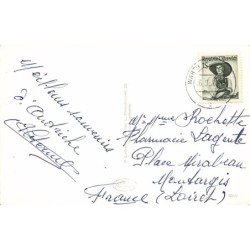 Meilleurs souvenirs
d'Autriche
M. & Mme Rochette
Pharmacie
Place Mirabeau
Montargis
France (Loiret)